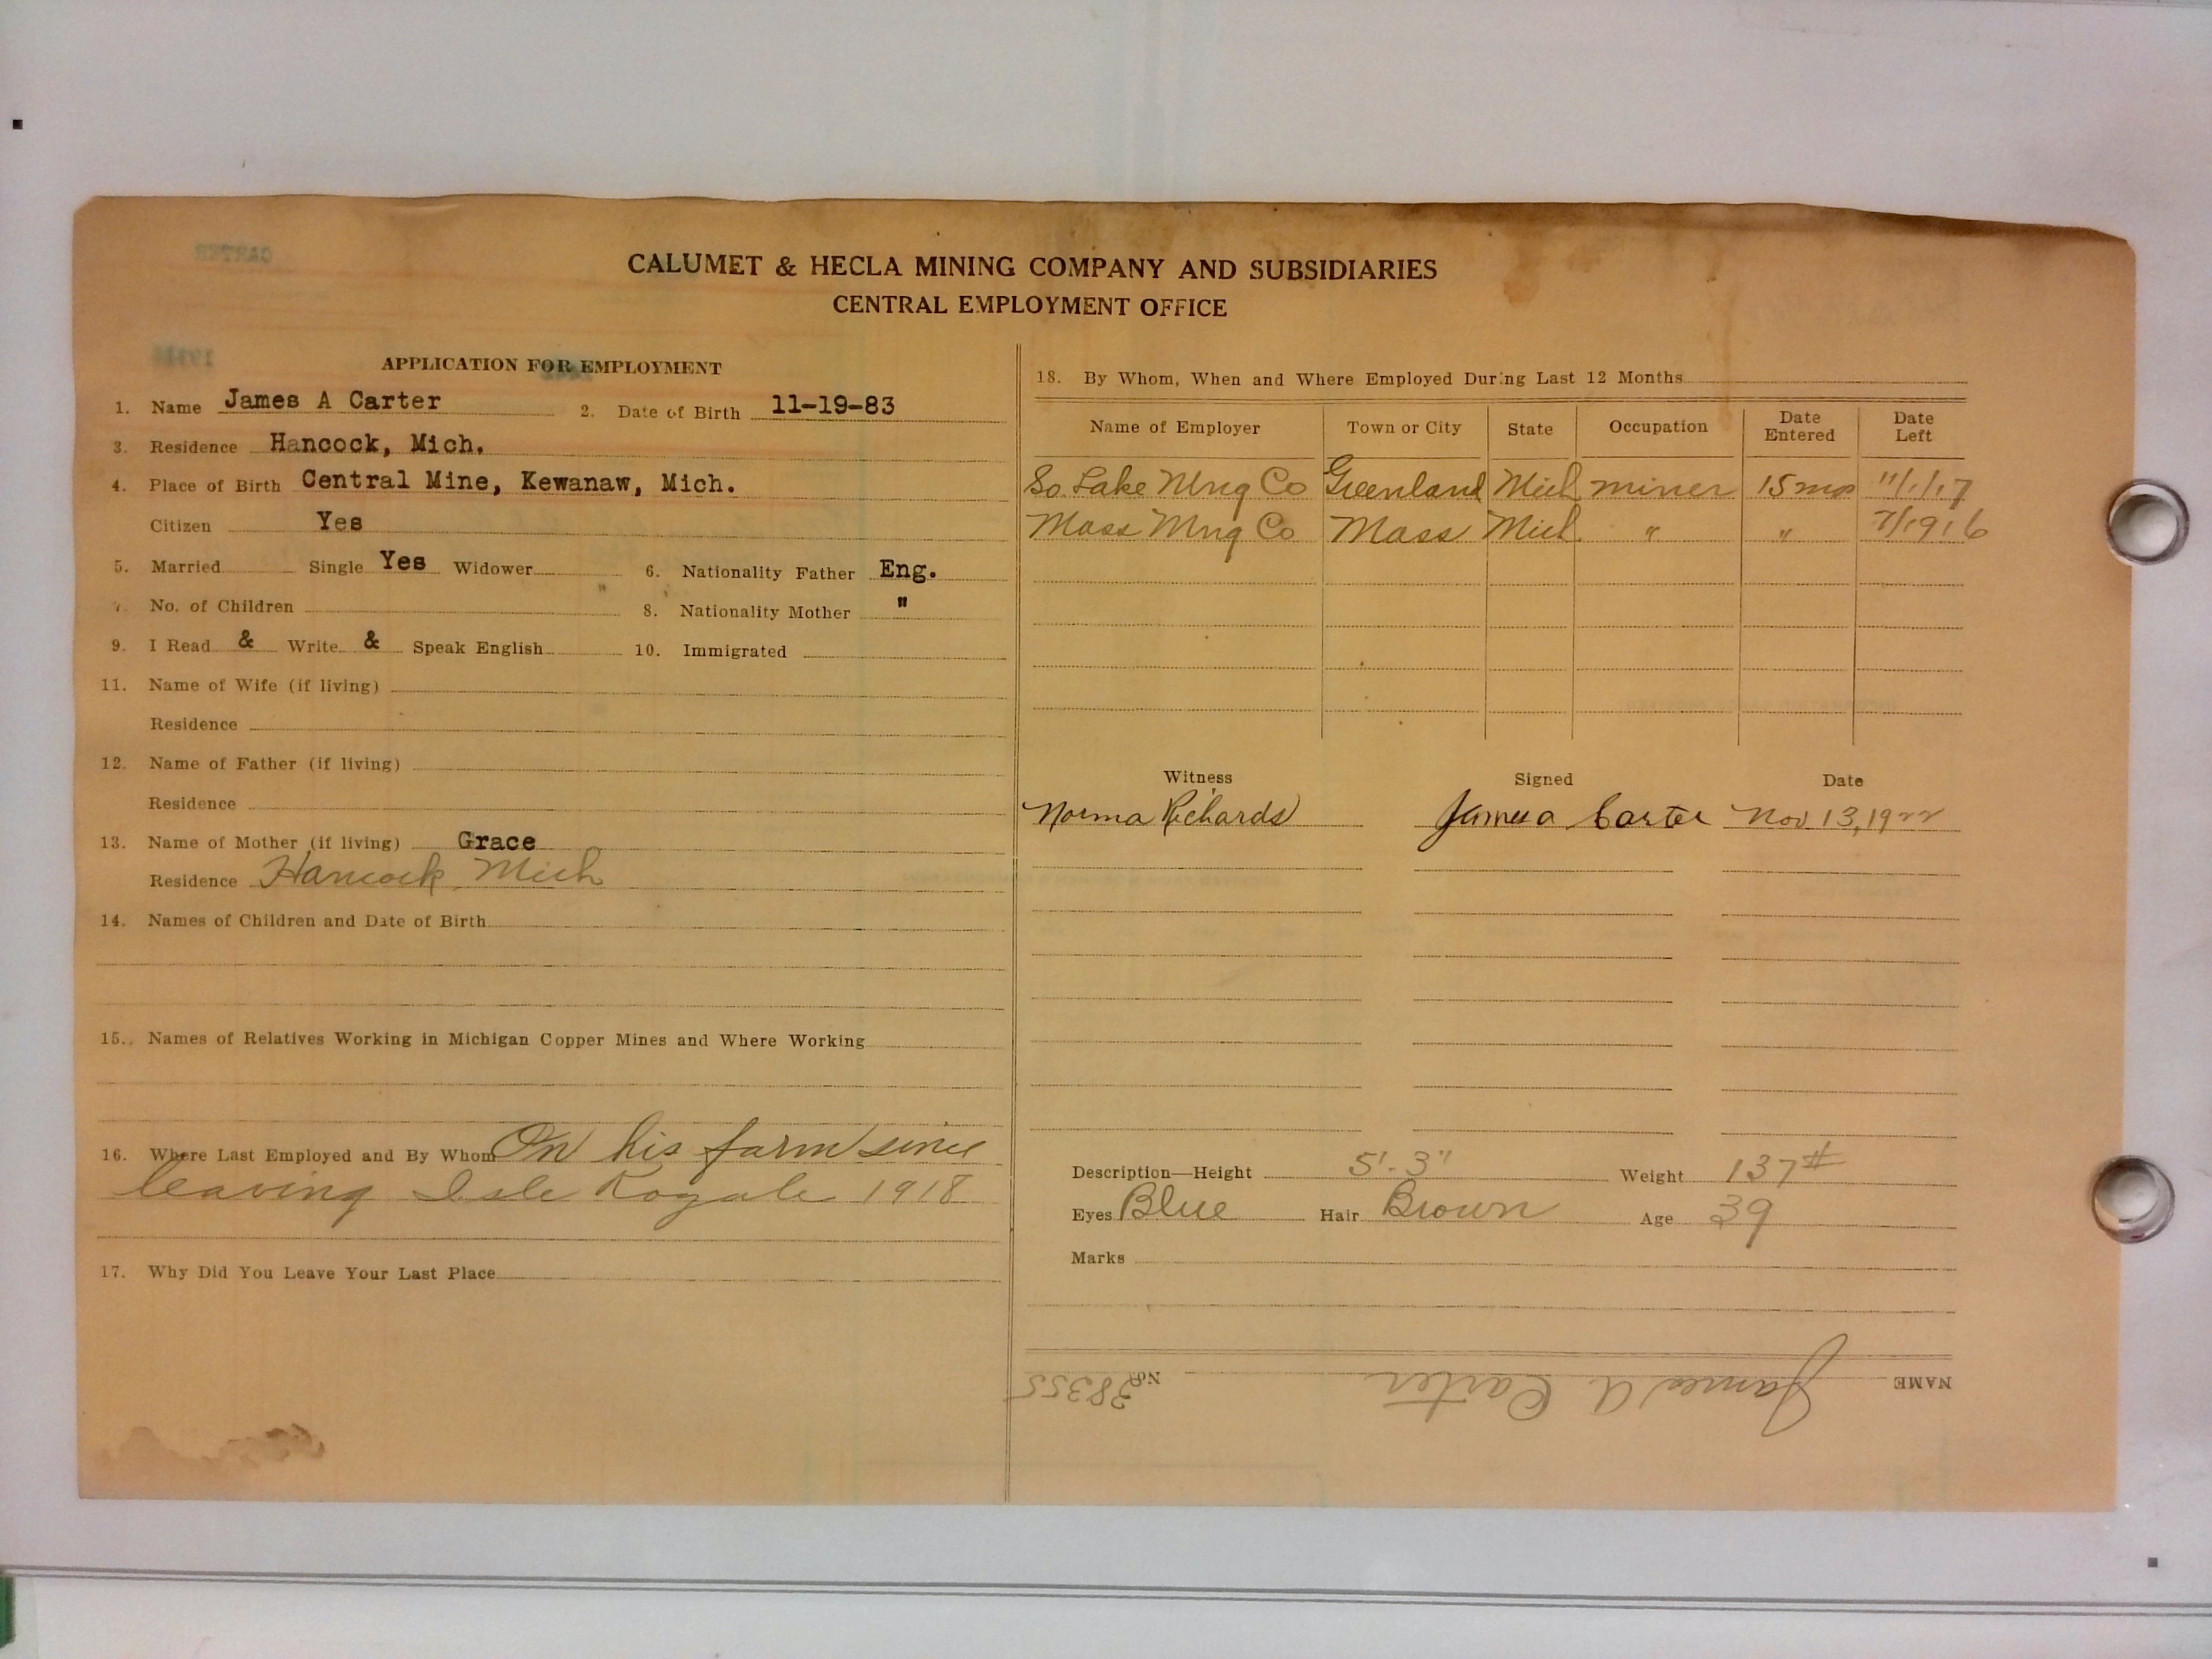 CALUMET & HECLA MINING COMPANY AND SUBSIDIARIES
CENTRAL EMPLOYMENT OFFICE
APPLICATION FOR EMPLOYMENT
1. Name James A Carter 2. Date of Birth 11-19-83
3. Residence Hancock, Mich.
4. Place of Birth Central Mine, Kewanaw, Mich.
Citizen Yes
5. Married Single Yes Widower 6. Nationality Father Eng.
7. No. of Children 8. Nationality Mother "
9. I Read & Write & Speak English 10. Immigrated
11. Name of Wife (if living)
Residence
12. Name of Father (if living)
Residence
13. Name of Mother (if living) Grace
Residence Hancock, Mich
14. Names of Children and Date of Birth
15. Names of Relatives Working in Michigan Copper Mines and Where Working
16. Where Last Employed and By Whom On his farm since
leaving Isle Royale 1918
17. Why Did You Leave Your Last Place
18. By Whom, When and Where Employed During Last 12 Months
Name of Employer Town or City State Occupation Date Entered Date Left
So. Lake Mng Co Greenland Mich miner 15 mos 11/1/17
Mass Mng Co Mass Mich. " " 7/1916
Witness Signed Date
Norma Richards James a Carter Nov 13, 1922
Description—Height 5'-3" Weight 137#
Eyes Blue Hair Brown Age 39
Marks
NAME James A Carter No. 38355
CARTER